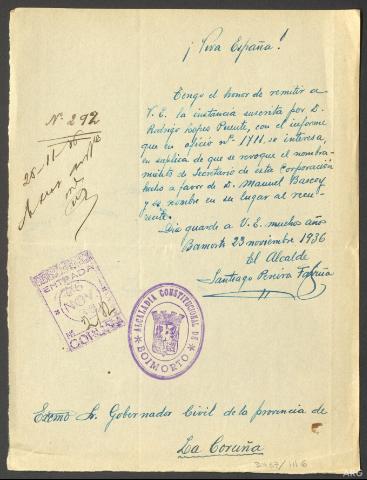 ¡Viva España!
Tengo el honor de remitir a
V.E. la instancia suscrita por D.
Rodrigo Lopez Puente, con el informe
que en oficio nº 1711, se interesa,
en suplica de que se revoque el nombra-
miento de Secretario de esta Corporación
hecho a favor de D. Manuel
y se nombre en su lugar al recu-
rrente.
Dios guarde a V.E. muchos años
Boimorto 23 noviembre 1936
El Alcalde
Santiago Pereira
Nº 292
25-11-36
ENTRADA
NOV
292
CORUÑA
ALCALDIA CONSTITUCIONAL DE
BOIMORTO
Excmo Sr. Gobernador Civil de la provincia de
La Coruña
ARG